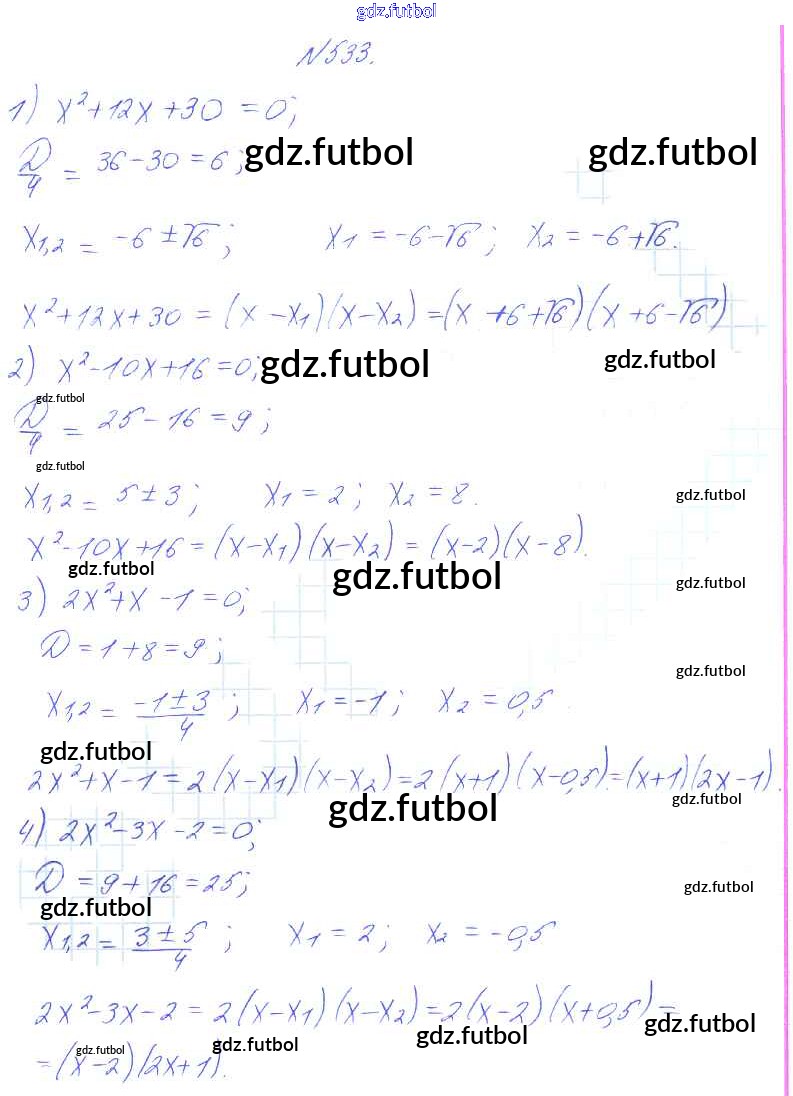 gdz.futbol
N533.
1) x²+12x+30=0;
D/4 = 36-30=6; gdz.futbol gdz.futbol
x1,2 = -6±√6; x1=-6-√6; x2=-6+√6.
x²+12x+30=(x-x1)(x-x2)=(x+6+√6)(x+6-√6)
2) x²-10x+16=0; gdz.futbol gdz.futbol
gdz.futbol
D/4 = 25-16=9;
gdz.futbol
x1,2 = 5±3; x1=2; x2=8. gdz.futbol
x²-10x+16=(x-x1)(x-x2)=(x-2)(x-8).
gdz.futbol gdz.futbol gdz.futbol
3) 2x²+x-1=0;
D=1+8=9;
gdz.futbol
x1,2 = (-1±3)/4; x1=-1; x2=0,5.
gdz.futbol
2x²+x-1=2(x-x1)(x-x2)=2(x+1)(x-0,5)=(x+1)(2x-1).
gdz.futbol gdz.futbol
4) 2x²-3x-2=0;
D=9+16=25; gdz.futbol
gdz.futbol
x1,2 = (3±5)/4; x1=2; x2=-0,5
2x²-3x-2=2(x-x1)(x-x2)=2(x-2)(x+0,5)=
gdz.futbol gdz.futbol gdz.futbol gdz.futbol
=(x-2)(2x+1).